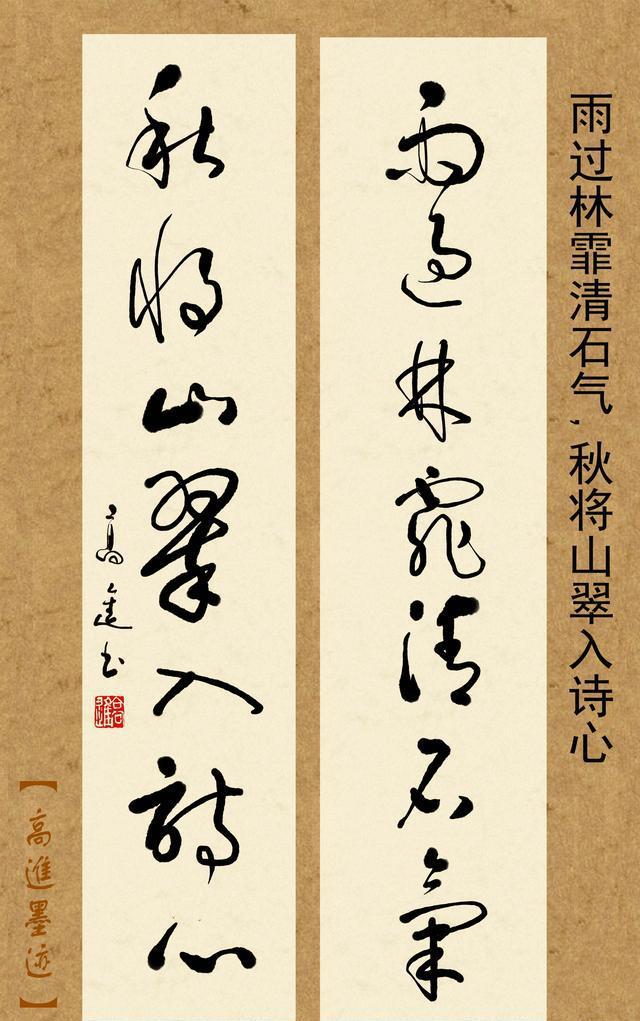 雨过林霏清石气,秋将山翠入诗心
雨過林霏清石氣
秋將山翠入詩心
高進书
【高進墨迹】